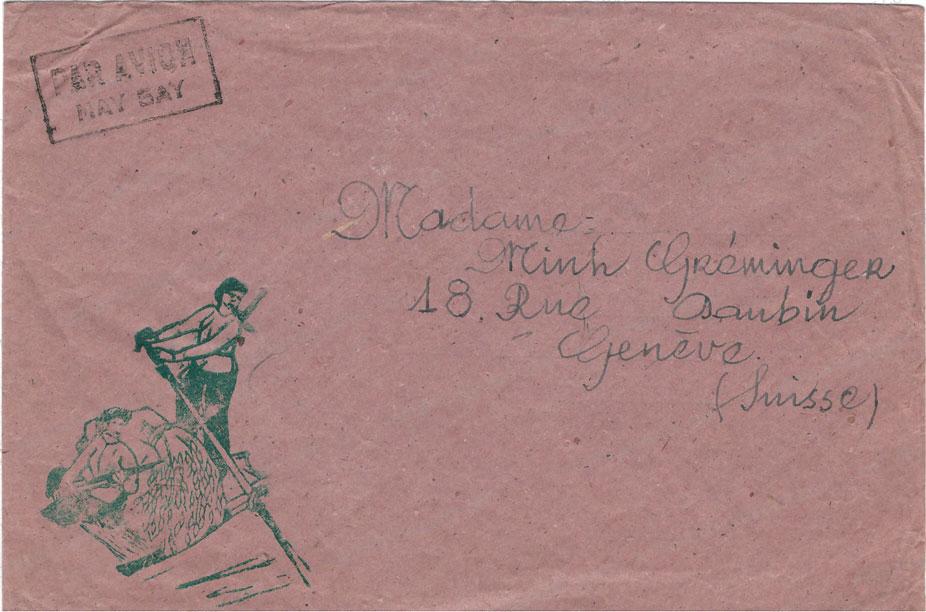 PAR AVION
MAY BAY
Madame:
Minh Gréminger
18. Rue Daubin
Genève.
(Suisse)